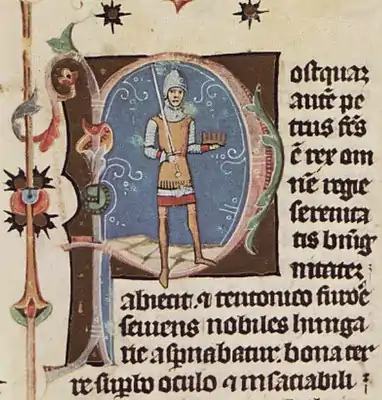 ostquaz
autē pe
trus fc̄s
ē rex om
nē regie
serenita
tis bnīg
nitatez
abiecit ⁊ teutonico furoē
seuiens nobiles hunga
rie aspnabatur. bona ter
re supbo oculo ⁊ insaciabili